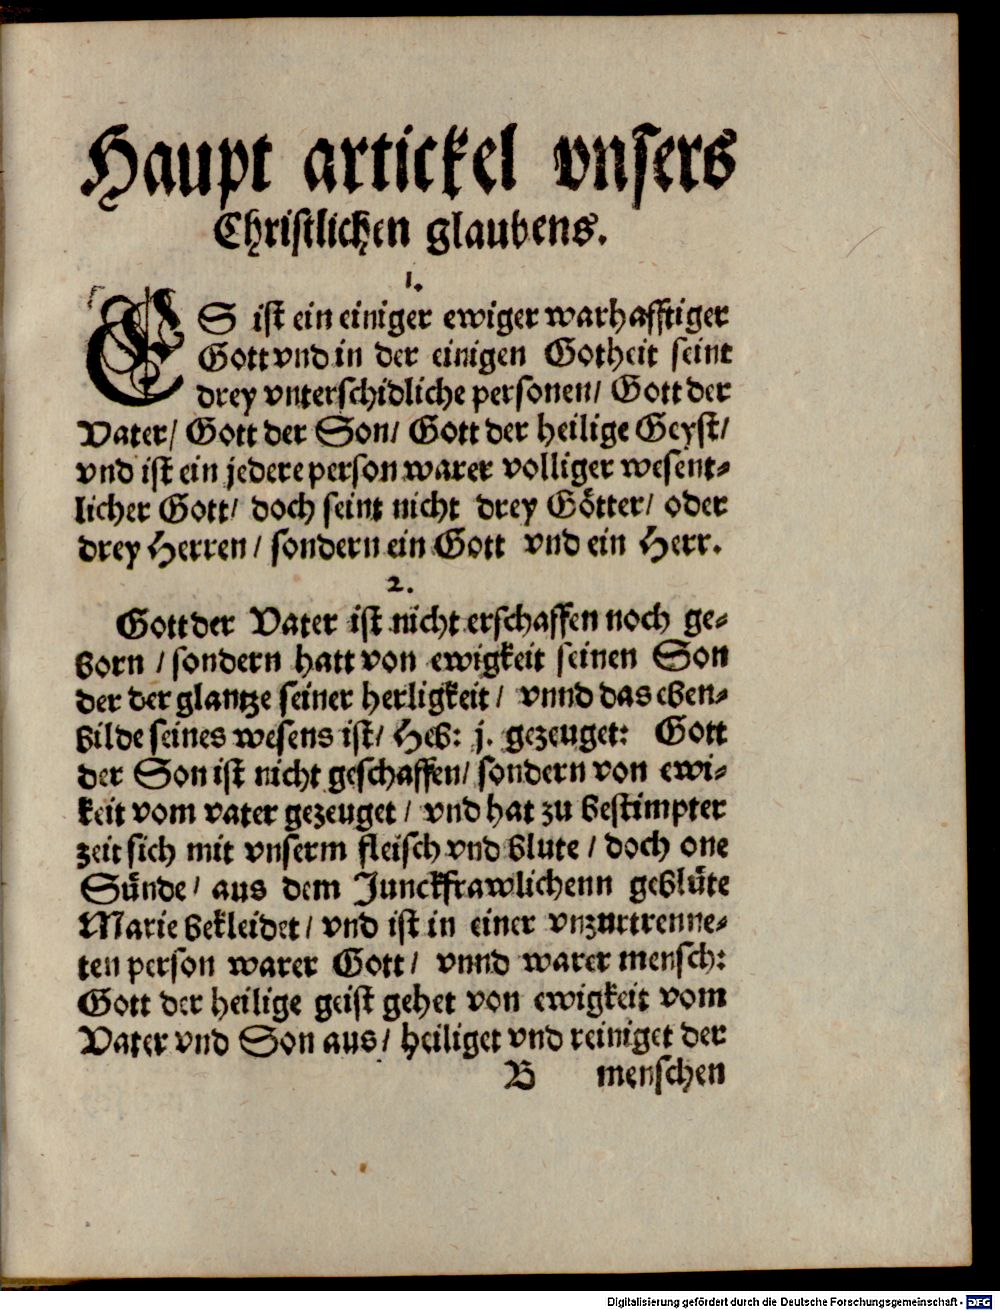 Haupt artickel vnsers
Christlichen glaubens.
1.
ES ist ein einiger ewiger warhafftiger
Gott vnd in der einigen Gotheit seint
drey vnterschidliche personen/ Gott der
Vater/ Gott der Son/ Gott der heilige Geyst/
vnd ist ein jedere person warer volliger wesent-
licher Gott/ doch seint nicht drey Götter/ oder
drey Herren/ sondern ein Gott vnd ein Herr.
2.
Gott der Vater ist nicht erschaffen noch ge-
born / sondern hatt von ewigkeit seinen Son
der der glantze seiner herligkeit/ vnnd das eben-
bilde seines wesens ist/ Heb: j. gezeuget: Gott
der Son ist nicht geschaffen/ sondern von ewi-
keit vom vater gezeuget / vnd hat zu bestimpter
zeit sich mit vnserm fleisch vnd blute / doch one
Sünde/ aus dem Junckfrawlichenn geblüte
Marie bekleidet/ vnd ist in einer vnzurtrenne-
ten person warer Gott/ vnnd warer mensch:
Gott der heilige geist gehet von ewigkeit vom
Vater vnd Son aus/ heiliget vnd reiniget der
B menschen
Digitalisierung gefördert durch die Deutsche Forschungsgemeinschaft - DFG